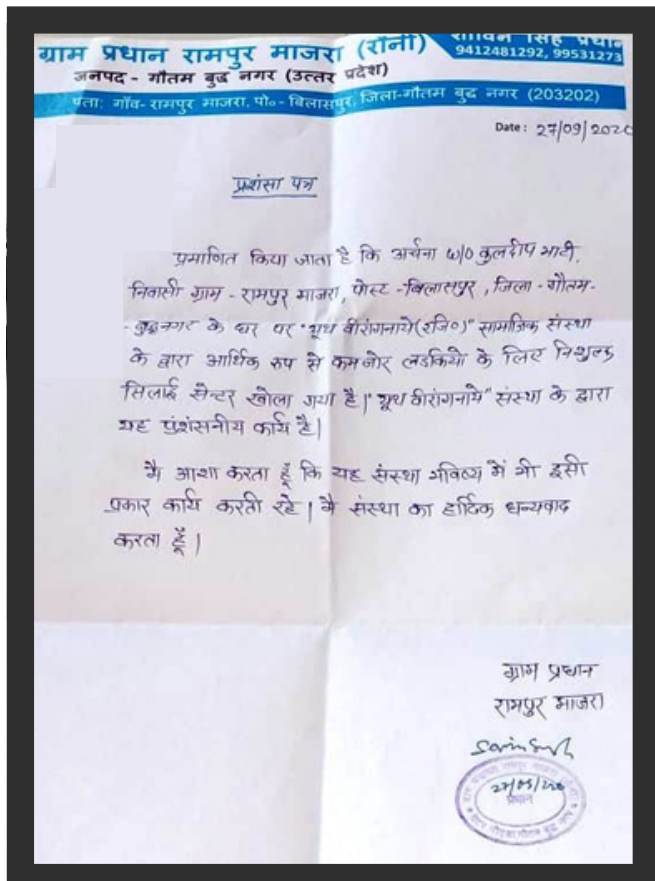 ग्राम प्रधान रामपुर माजरा (रौनी)
सिंह प्रधान
9412481292, 99531273
जनपद - गौतम बुद्ध नगर (उत्तर प्रदेश)
पता: गाँव- रामपुर माजरा, पो०- बिलासपुर, जिला-गौतम बुद्ध नगर (203202)
Date: 27/09/2020
प्रशंसा पत्र
प्रमाणित किया जाता है कि अर्चना w/o कुलदीप भाटी,
निवासी ग्राम - रामपुर माजरा, पोस्ट - बिलासपुर, जिला - गौतम-
- बुद्धनगर के घर पर "यूथ वीरांगनाये (रजि०)" सामाजिक संस्था
के द्वारा आर्थिक रुप से कमजोर लडकियो के लिए निशुल्क
सिलाई सेन्टर खोला गया है। "यूथ वीरांगनाये" संस्था के द्वारा
यह प्रंशसनीय कार्य है।
मै आशा करता हूँ कि यह संस्था भविष्य में भी इसी
प्रकार कार्य करती रहे। मै संस्था का हार्दिक धन्यवाद
करता हूँ।
ग्राम प्रधान
रामपुर माजरा
प्रधान